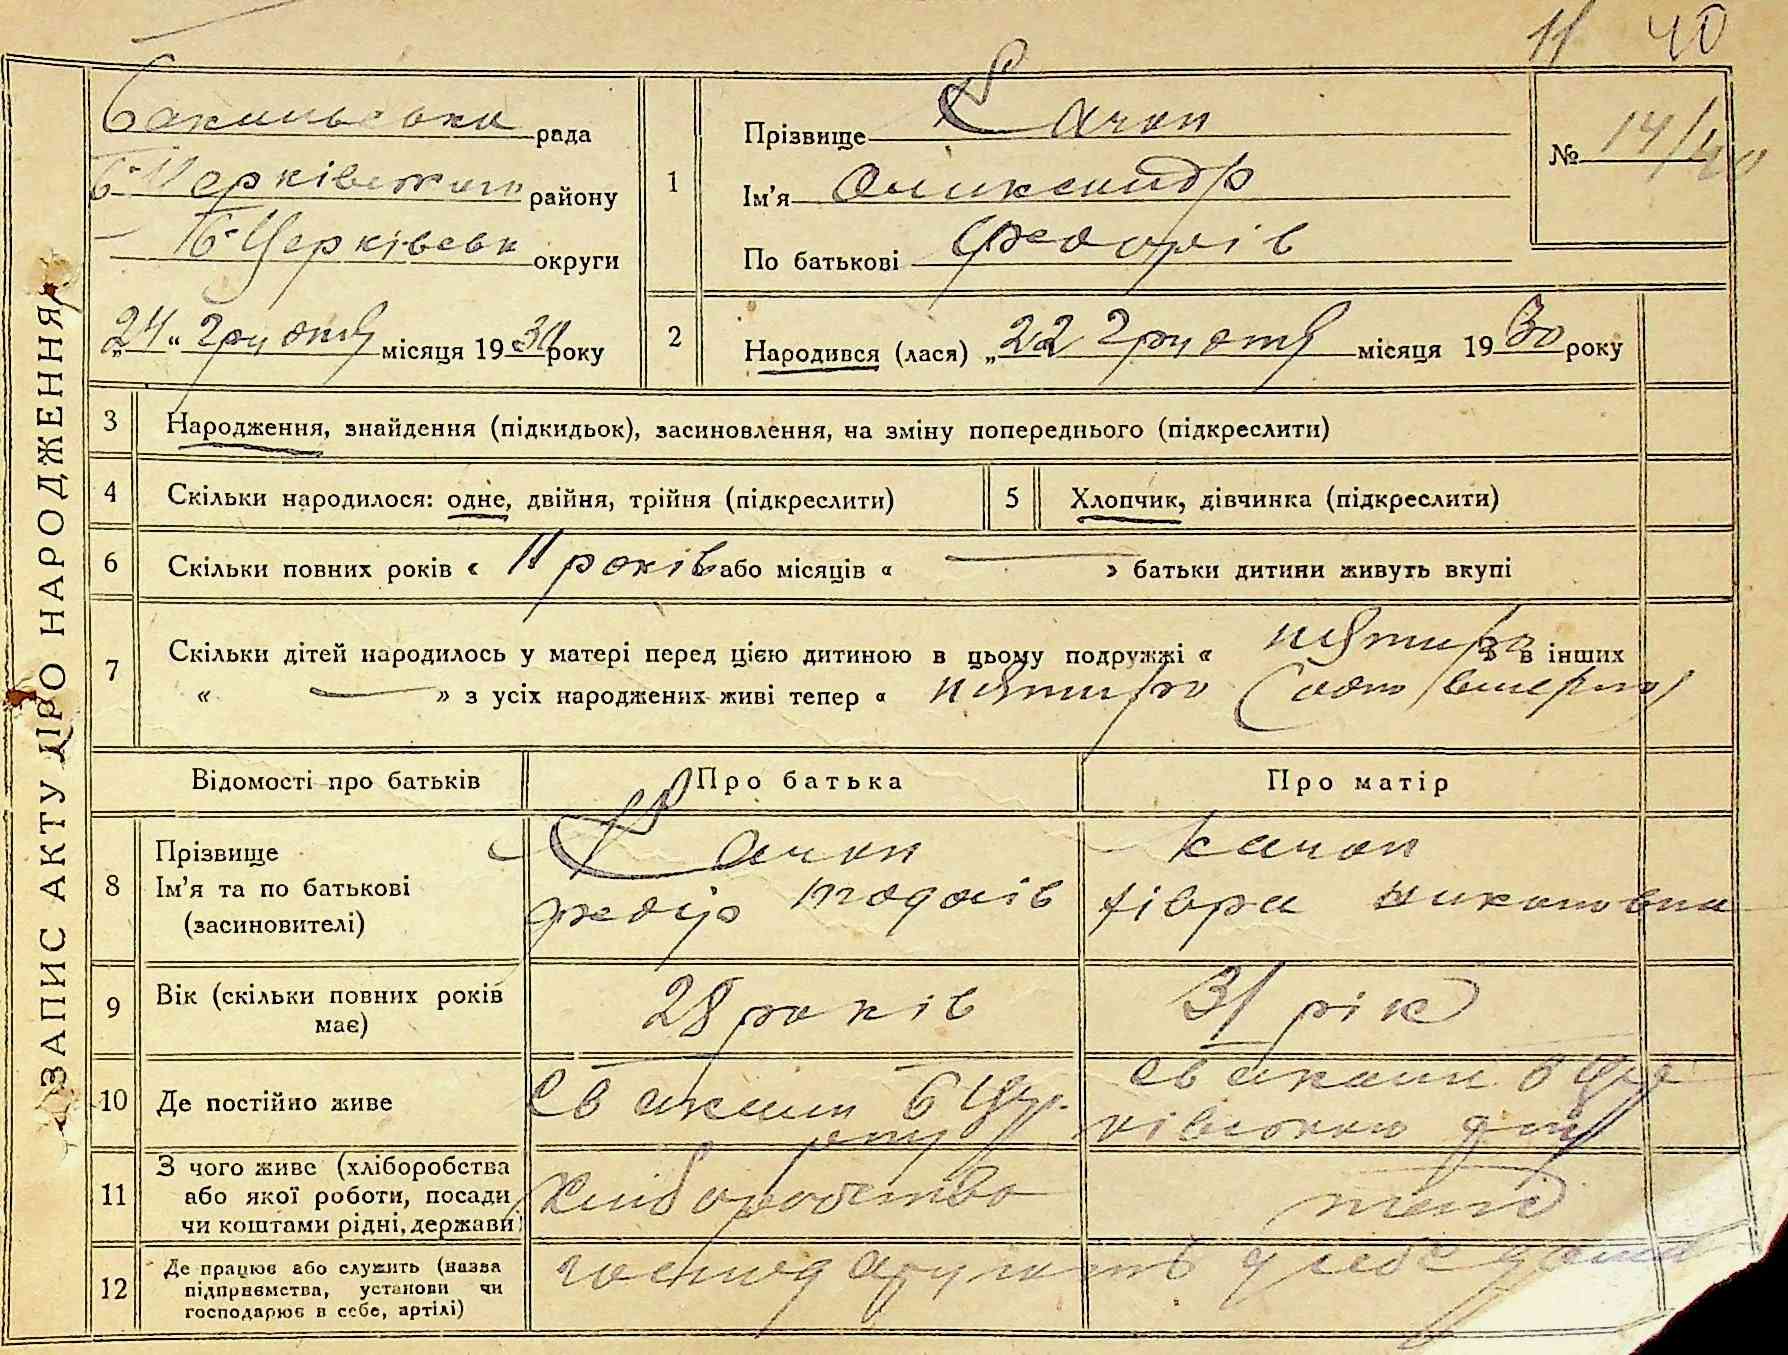 11 40
ЗАПИС АКТУ ПРО НАРОДЖЕННЯ
рада
Б-Церківського району
Б-Церківськ округи
„24“ грудня місяця 1930 року
1
Прізвище Качан
Ім'я Олександр
По батькові Федорів
№ 14/40
2
Народився (лася) „22 грудня місяця 1930 року
3 Народження, знайдення (підкидьок), засиновлення, на зміну попереднього (підкреслити)
4 Скільки народилося: одне, двійня, трійня (підкреслити)
5 Хлопчик, дівчинка (підкреслити)
6 Скільки повних років « 11 років або місяців « — » батьки дитини живуть вкупі
7 Скільки дітей народилось у матері перед цією дитиною в цьому подружжі « пятиро » в інших
« — » з усіх народжених живі тепер « пятиро (одно вмерло)
Відомості про батьків
Про батька
Про матір
8
Прізвище
Ім'я та по батькові
(засиновителі)
Качан
Федір
Качан
9
Вік (скільки повних років
має)
28 років
31 рік
10 Де постійно живе
11
З чого живе (хліборобства
або якої роботи, посади
чи коштами рідні, держави)
хліборобство
теж
12
Де працює або служить (назва
підприємства, установи чи
господарює в себе, артілі)
господарують у себе дома